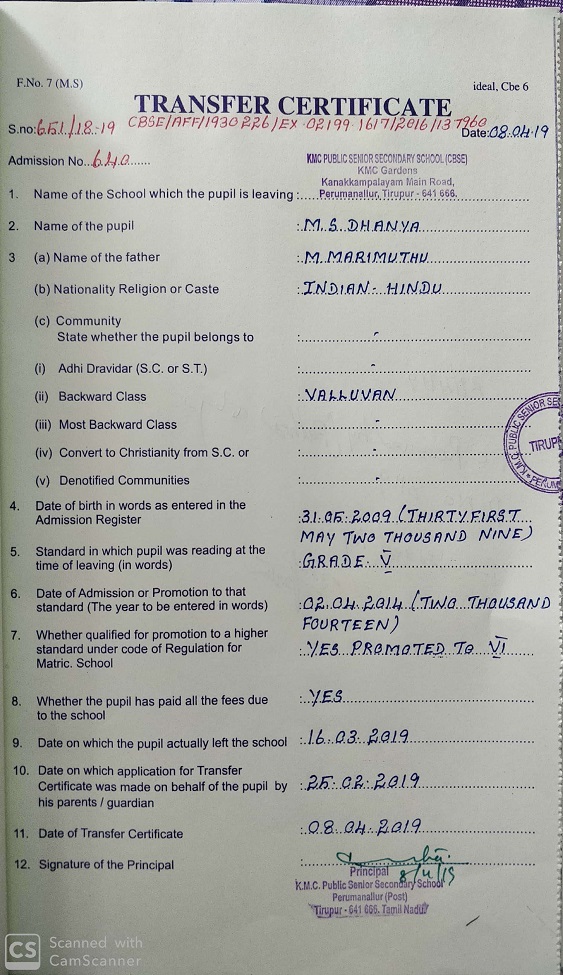 F.No. 7 (M.S)
ideal, Cbe 6
TRANSFER CERTIFICATE
S.no: 651/18-19 CBSE/AFF/1930226/EX-02199-1617/2016/137960
Date: 08.04.19
Admission No. 640
KMC PUBLIC SENIOR SECONDARY SCHOOL (CBSE)
KMC Gardens
Kanakkampalayam Main Road,
1. Name of the School which the pupil is leaving : Perumanallur, Tirupur - 641 666.
2. Name of the pupil : M.S. DHANYA
3 (a) Name of the father : M. MARIMUTHU
(b) Nationality Religion or Caste : INDIAN - HINDU
(c) Community
State whether the pupil belongs to : -
(i) Adhi Dravidar (S.C. or S.T.) : -
(ii) Backward Class : VALLUVAN
(iii) Most Backward Class : -
(iv) Convert to Christianity from S.C. or : -
(v) Denotified Communities : -
K.M.C. PUBLIC SENIOR SE
TIRUP
PERUM
4. Date of birth in words as entered in the
Admission Register : 31.05.2009 (THIRTY FIRST
MAY TWO THOUSAND NINE)
5. Standard in which pupil was reading at the
time of leaving (in words) : GRADE V
6. Date of Admission or Promotion to that
standard (The year to be entered in words) : 02.04.2014 (TWO THOUSAND
FOURTEEN)
7. Whether qualified for promotion to a higher
standard under code of Regulation for : YES PROMOTED TO VI
Matric. School
8. Whether the pupil has paid all the fees due : YES
to the school
9. Date on which the pupil actually left the school : 16.03.2019
10. Date on which application for Transfer
Certificate was made on behalf of the pupil by : 25.02.2019
his parents / guardian
11. Date of Transfer Certificate : 08.04.2019
12. Signature of the Principal :
Principal 8/4/19
K.M.C. Public Senior Secondary School
Perumanallur (Post)
Tirupur - 641 666. Tamil Nadu.
CS Scanned with
CamScanner